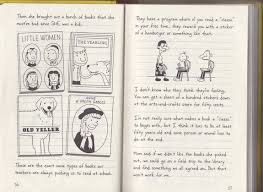 Then she brought out a bunch of books that she
must've had since she was a kid.
LITTLE WOMEN
THE YEARLING
OLD YELLER
ANNE of GREEN GABLES
These are the exact same types of books our
teachers are always pushing us to read at school.
They have a program where if you read a "classic"
in your free time, they reward you with a sticker
of a hamburger or something like that.
I don't know who they think they're fooling.
You can get a sheet of a hundred stickers down
at the arts-and-crafts store for fifty cents.
I'm not really sure what makes a book a "classic"
to begin with, but I think it has to be at least
fifty years old and some person or animal has to
die at the end.
Mom said if we didn't like the books she picked
out, we could go on a field trip to the library
and find something we all agreed on. But that
won't work for me.